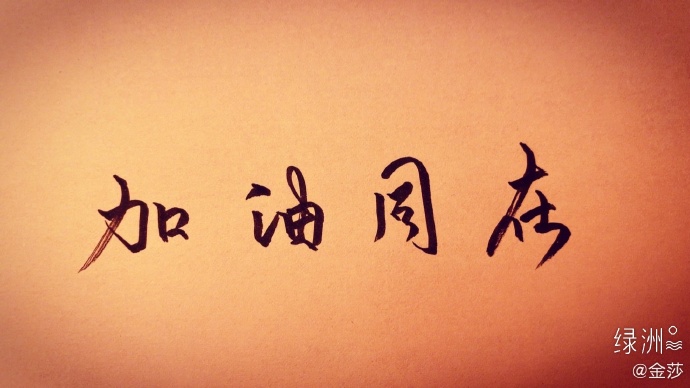 加油同在
绿洲
@金莎